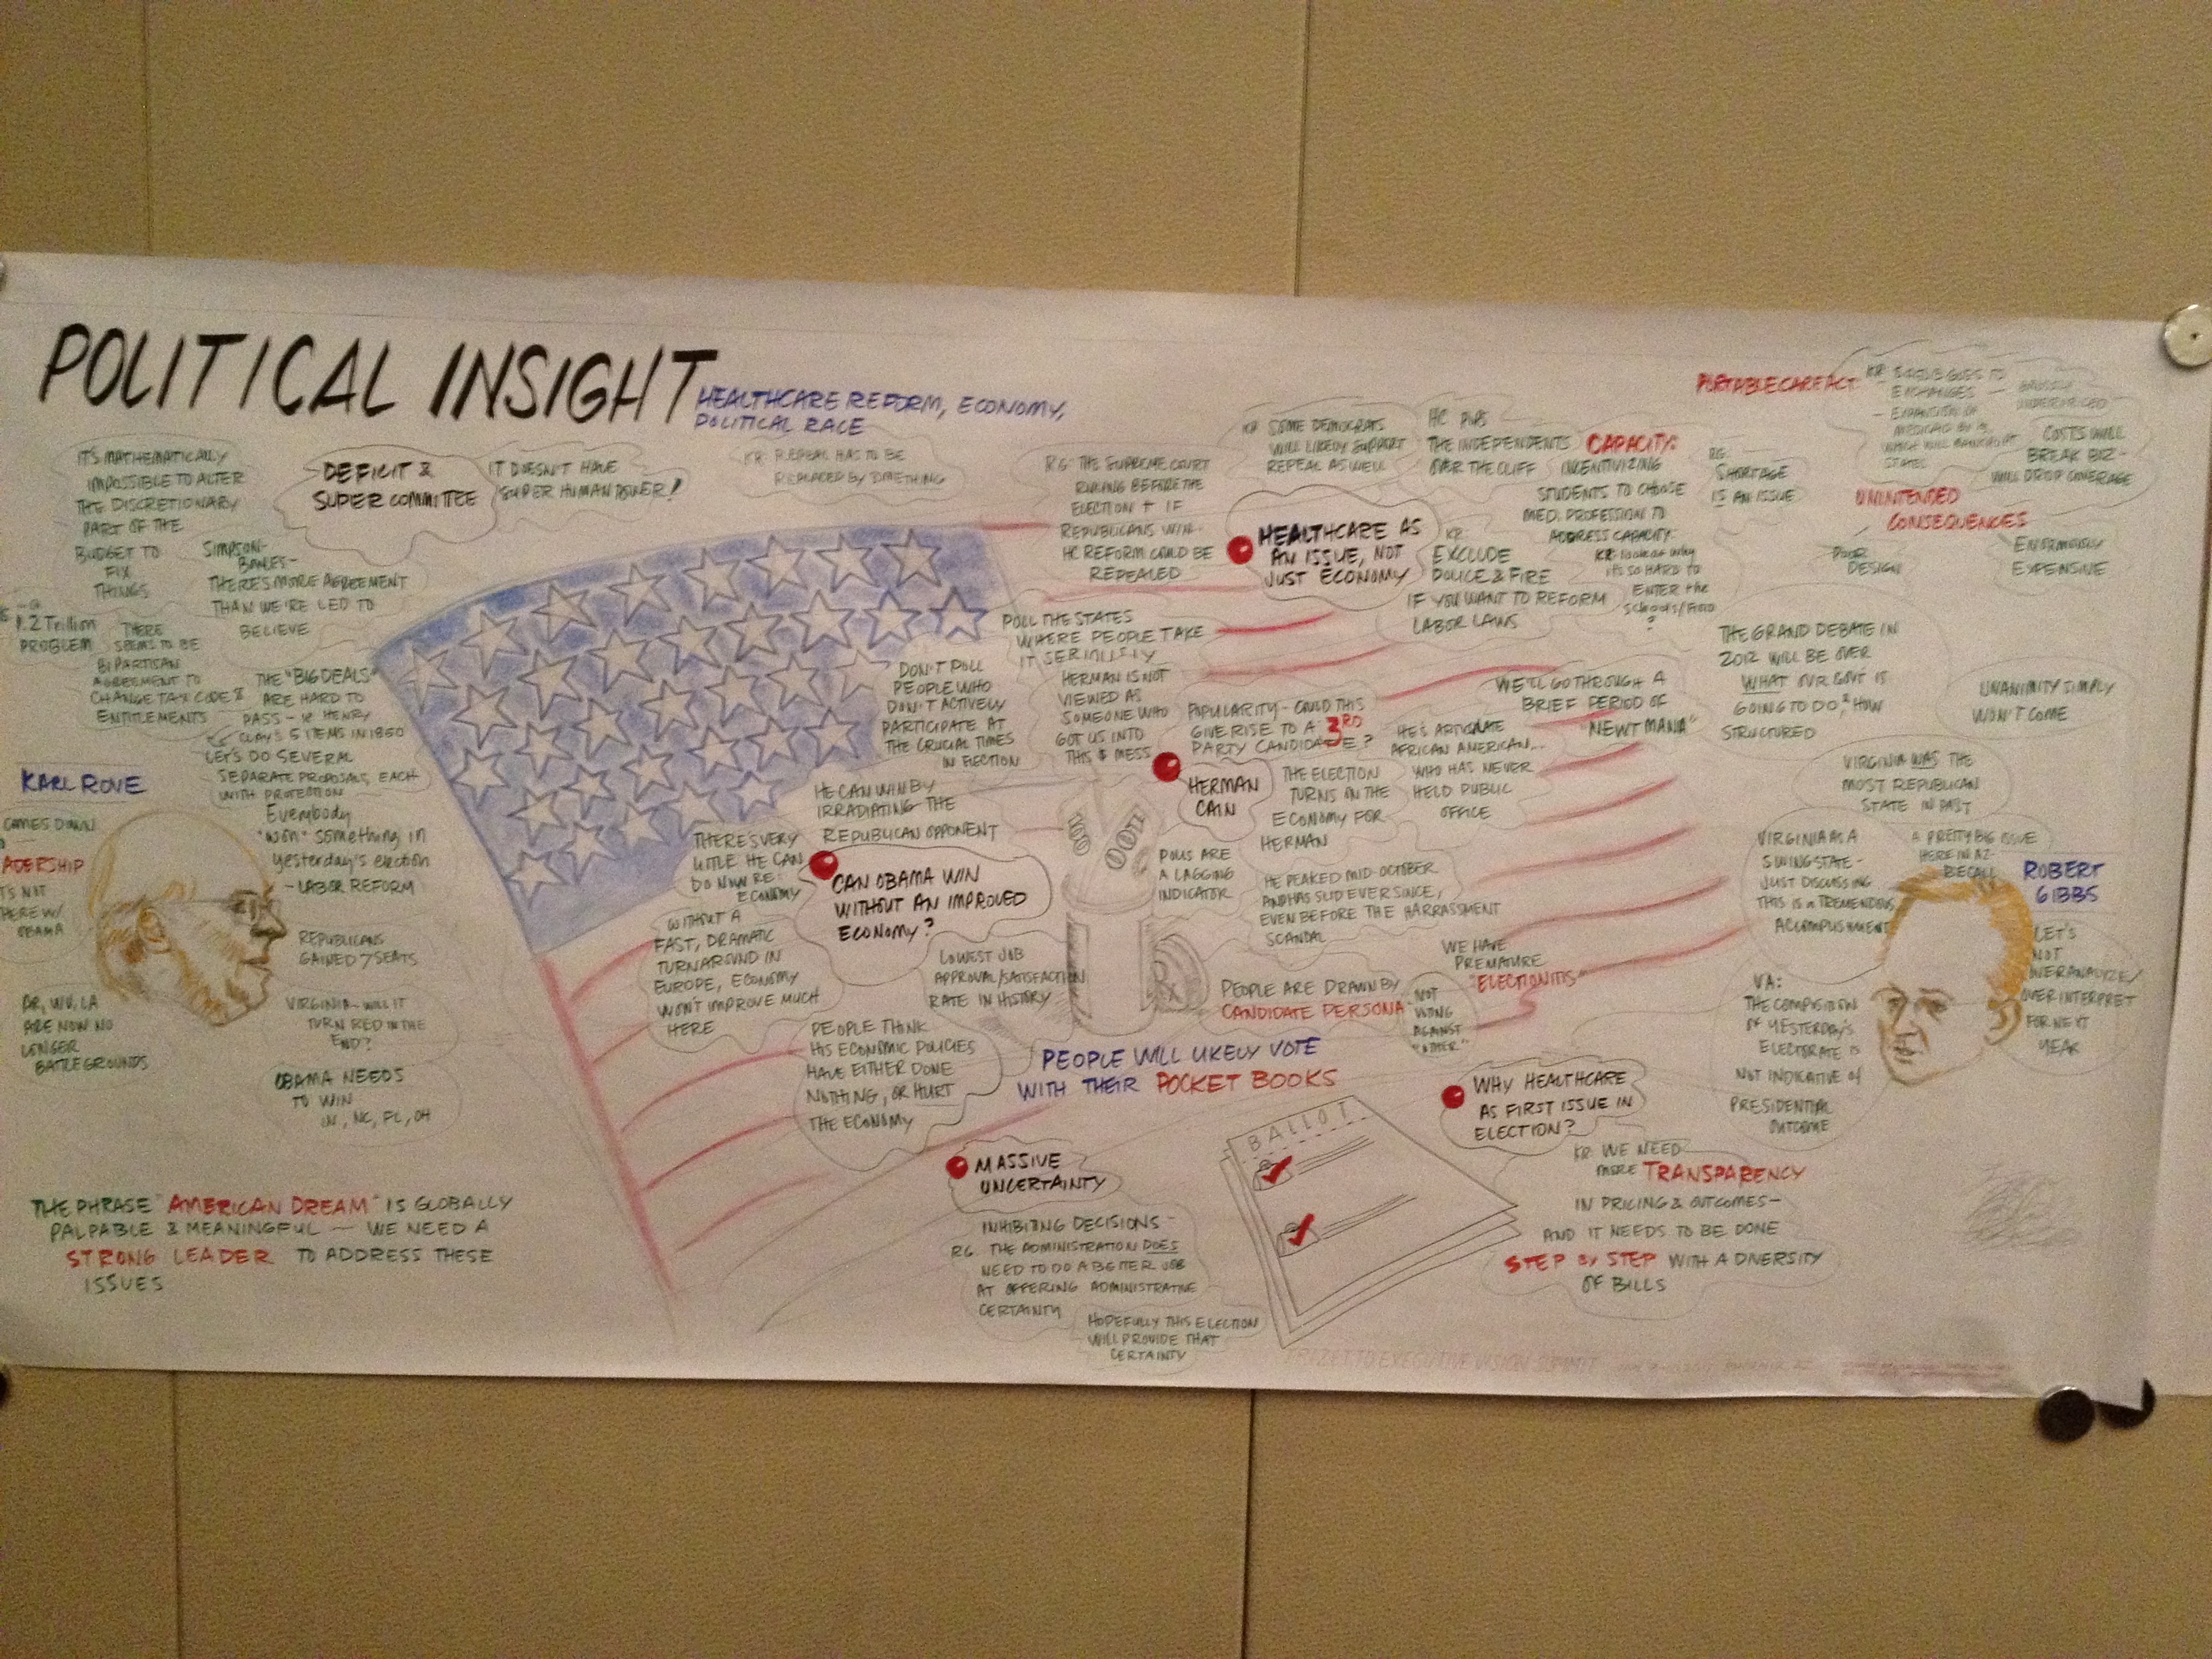 POLITICAL INSIGHT
HEALTHCARE REFORM, ECONOMY,
POLITICAL RACE
IT'S MATHEMATICALLY
IMPOSSIBLE TO ALTER
THE DISCRETIONARY
PART OF THE
BUDGET TO
FIX
THINGS
DEFICIT &
SUPER COMMITTEE
IT DOESN'T HAVE
SUPER HUMAN POWER!
SIMPSON-
BOWLES-
THERE'S MORE AGREEMENT
THAN WE'RE LED TO
BELIEVE
1.2 Trillion
PROBLEM
THERE
SEEMS TO BE
BIPARTISAN
AGREEMENT TO
CHANGE TAX CODE &
ENTITLEMENTS
THE "BIG DEALS"
ARE HARD TO
PASS - HENRY
CLAY'S 5 ITEMS IN 1850
LET'S DO SEVERAL
SEPARATE PROPOSALS, EACH
WITH PROTECTION
KARL ROVE
COMES DOWN
ADERSHIP
T'S NOT
HERE W/
OBAMA
Everybody
"won" something in
yesterday's election
- LABOR REFORM
REPUBLICANS
GAINED 7 SEATS
AR, WV, LA
ARE NOW NO
LONGER
BATTLEGROUNDS
VIRGINIA - WILL IT
TURN RED IN THE
END?
OBAMA NEEDS
TO WIN
IN, NC, FL, OH
THE PHRASE "AMERICAN DREAM" IS GLOBALLY
PALPABLE & MEANINGFUL — WE NEED A
STRONG LEADER TO ADDRESS THESE
ISSUES
KR: REPEAL HAS TO BE
REPLACED BY SOMETHING
RG: THE SUPREME COURT
RULING BEFORE THE
ELECTION + IF
REPUBLICANS WIN-
HC REFORM COULD BE
REPEALED
KR SOME DEMOCRATS
WILL LIKELY SUPPORT
REPEAL AS WELL
HC
THE INDEPENDENTS
OVER THE CLIFF
HEALTHCARE AS
AN ISSUE, NOT
JUST ECONOMY
CAPACITY:
INCENTIVIZING
STUDENTS TO CHOOSE
MED. PROFESSION TO
ADDRESS CAPACITY.
KR: look at why
it's so hard to
ENTER the
schools/
?
RG.
SHORTAGE
IS AN ISSUE
KR:
EXCLUDE
POLICE & FIRE
IF YOU WANT TO REFORM
LABOR LAWS
PORTABLE CARE ACT:
KR GOES TO
EXCHANGES
- EXPANSION OF
MEDICAID
WHICH WILL BANKRUPT
STATES
GROSSLY
UNDERPRICED
COSTS WILL
BREAK BIZ-
WILL DROP COVERAGE
UNINTENDED
CONSEQUENCES
POOR
DESIGN
ENORMOUSLY
EXPENSIVE
POLL THE STATES
WHERE PEOPLE TAKE
IT SERIOUSLY
DON'T POLL
PEOPLE WHO
DON'T ACTIVELY
PARTICIPATE AT
THE CRUCIAL TIMES
IN ELECTION
HERMAN IS NOT
VIEWED AS
SOMEONE WHO
GOT US INTO
THIS $ MESS
POPULARITY - COULD THIS
GIVE RISE TO A 3RD
PARTY CANDIDATE?
HERMAN
CAIN
THE ELECTION
TURNS ON THE
ECONOMY FOR
HERMAN
HE'S ARTICULATE
AFRICAN AMERICAN...
WHO HAS NEVER
HELD PUBLIC
OFFICE
WE'LL GO THROUGH A
BRIEF PERIOD OF
"NEWT MANIA"
POLLS ARE
A LAGGING
INDICATOR
HE PEAKED MID-OCTOBER
AND HAS SLID EVER SINCE,
EVEN BEFORE THE HARRASSMENT
SCANDAL
WE HAVE
PREMATURE
"ELECTIONITIS"
PEOPLE ARE DRAWN BY
CANDIDATE PERSONA
NOT
VOTING
AGAINST
"OTHER"
HE CAN WIN BY
IRRADIATING THE
REPUBLICAN OPPONENT
THERE'S VERY
LITTLE HE CAN
DO NOW RE:
ECONOMY
CAN OBAMA WIN
WITHOUT AN IMPROVED
ECONOMY?
WITHOUT A
FAST, DRAMATIC
TURNAROUND IN
EUROPE, ECONOMY
WON'T IMPROVE MUCH
HERE
LOWEST JOB
APPROVAL/SATISFACTION
RATE IN HISTORY
PEOPLE THINK
HIS ECONOMIC POLICIES
HAVE EITHER DONE
NOTHING, OR HURT
THE ECONOMY
100
Rx
PEOPLE WILL LIKELY VOTE
WITH THEIR POCKET BOOKS
MASSIVE
UNCERTAINTY
INHIBITING DECISIONS-
RG. THE ADMINISTRATION DOES
NEED TO DO A BETTER JOB
AT OFFERING ADMINISTRATIVE
CERTAINTY
HOPEFULLY THIS ELECTION
WILL PROVIDE THAT
CERTAINTY
BALLOT
WHY HEALTHCARE
AS FIRST ISSUE IN
ELECTION?
KR: WE NEED
MORE TRANSPARENCY
IN PRICING & OUTCOMES-
AND IT NEEDS TO BE DONE
STEP BY STEP WITH A DIVERSITY
OF BILLS
THE GRAND DEBATE IN
2012 WILL BE OVER
WHAT OUR GOV'T IS
GOING TO DO, & HOW
STRUCTURED
UNANIMITY SIMPLY
WON'T COME
VIRGINIA WAS THE
MOST REPUBLICAN
STATE IN PAST
VIRGINIA AS A
SWING STATE-
JUST DISCUSSING
THIS IS A TREMENDOUS
ACCOMPLISHMENT
A PRETTY BIG ISSUE
HERE IN AZ-
RECALL
ROBERT
GIBBS
LET'S
NOT
OVERANALYZE/
OVER INTERPRET
FOR NEXT
YEAR
VA:
THE COMPOSITION
OF YESTERDAY'S
ELECTORATE IS
NOT INDICATIVE of
PRESIDENTIAL
OUTCOME
EXECUTIVE VISION SUMMIT